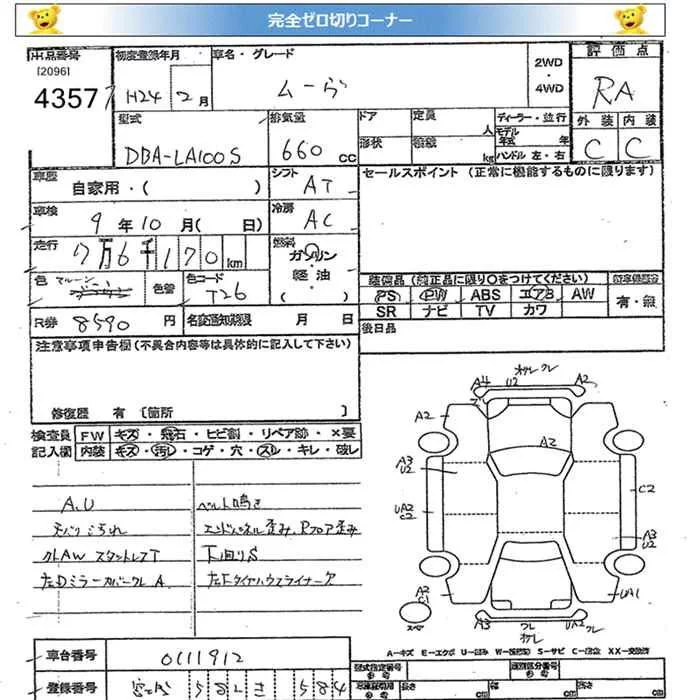 完全ゼロ切りコーナー
出品番号
[2096]
4357
初度登録年月
H24 2月
車名・グレード
ムーヴ
2WD
・
4WD
評価点
RA
外装 内装
C C
型式
DBA-LA100S
排気量
660 cc
ドア
形状
定員 人
積載 kg
ディーラー・並行
モデル年式 年
ハンドル 左・右
車歴
自家用・( )
シフト
AT
セールスポイント (正常に機能するものに限ります)
車検
9年10月( 日)
冷房
AC
走行
7万6千170km
燃料
ガソリン
・
軽・油
( )
色
マルーン
色替
色コード
T26
装備品 (純正品に限り○をつけてください)
PS PW ABS エアB AW
SR ナビ TV カワ
有・無
R券 8590円
名変通知期限 月 日
後日品
注意事項申告欄(不具合内容等は具体的に記入して下さい)
修復歴 有 [箇所 ]
検査員
記入欄
FW キズ・飛石・ヒビ割・リペア跡・×要
内装 キズ・汚レ・コゲ・穴・スレ・キレ・破レ
A.U
ベルト鳴き
天バリ汚れ
エンドパネル歪み, Rフロア歪み
スタットレスT
下回りS
左Dミラーカバークレ A
左Fタイヤハウスライナー欠
A4 U2 ワレ クレ A2
A2
A2
A3
U2
UA2
C2
C2
A3
U2
A2
C1
UA1
スペア
A3 クレ UA2
A=キズ E=エクボ U=凹み W=補修跡 S=サビ C=腐食 XX=交換済
車台番号
0111912
登録番号
型式指定番号
類別区分番号
長さ cm 幅 cm 高さ cm